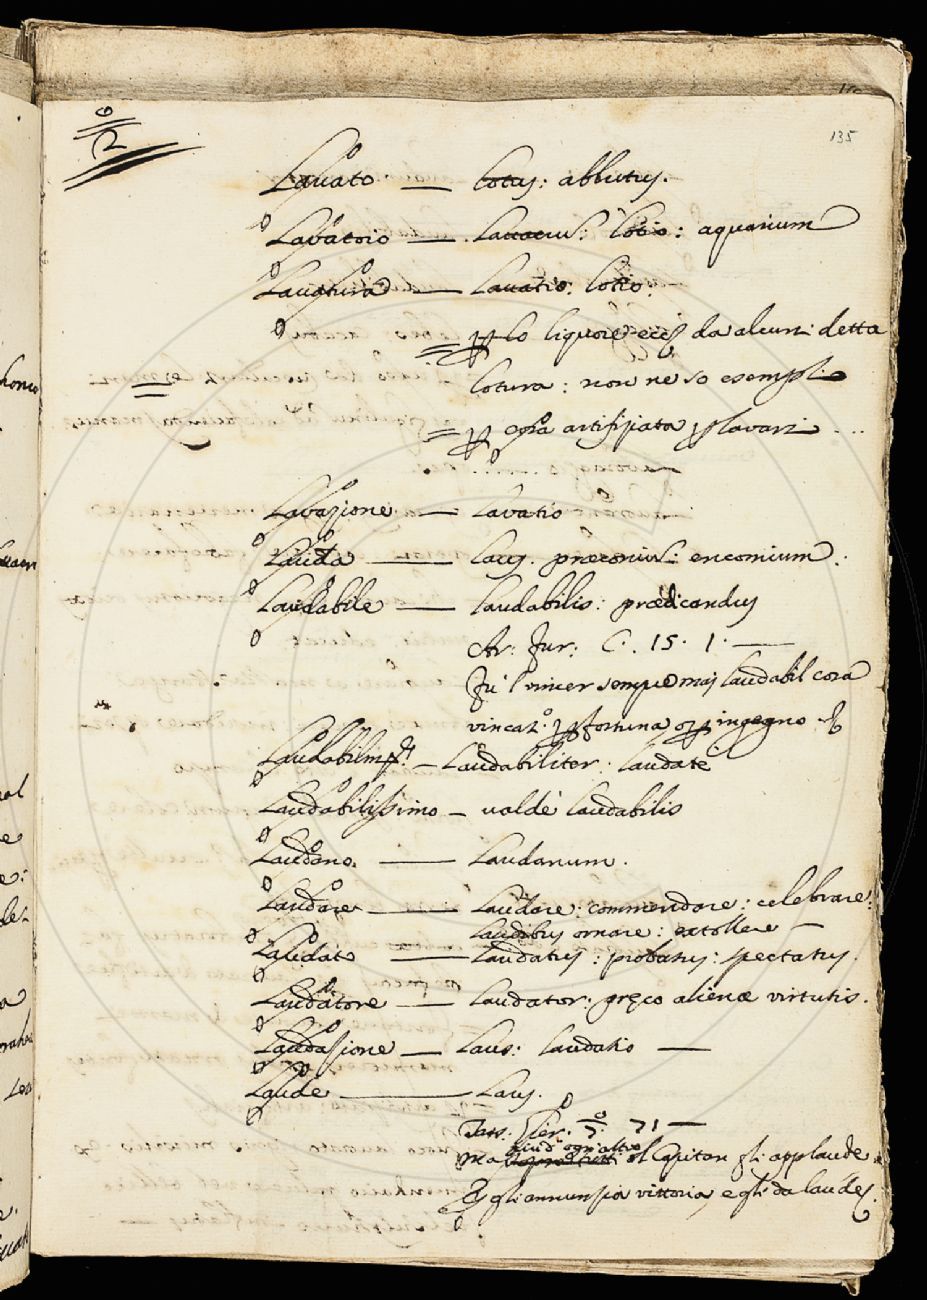 135
Lavato — Lotus: ablutus.
Lavatoio — Lavacru': Lotio: aquarium
Lavatura — Lavatio: Lotio:
= p lo liquore ecc da alcuni detta
Lotura: non ne so esempli
= p cosa artifiziata p lavarz ...
Lavazione — Lavatio
Lauda — Laus. præconiu': encomium.
Laudabile — Laudabilis: prædicandus
Ar: Fur: C. 15. 1. —
Fu 'l vincer sempre mai laudabil cosa
vincasi p fortuna o p ingegno
— Laudabiliter: laudate
Laudabilissimo — valdè laudabilis
Laudano. — Laudanum.
Laudare — Laudare: commendare: celebrare:
Laudibus ornare: extollere —
Laudato — Laudatus: probatus: spectatus.
Laudatore — Laudator: præco alienæ virtutis.
Laudazione — Laus: laudatio —
Laude — Laus.
Tass: Gier: 7. 71 —
ogn'altro
Ma il Capitan gli applaude
E gli annunzia vittoria, e gli da laude.